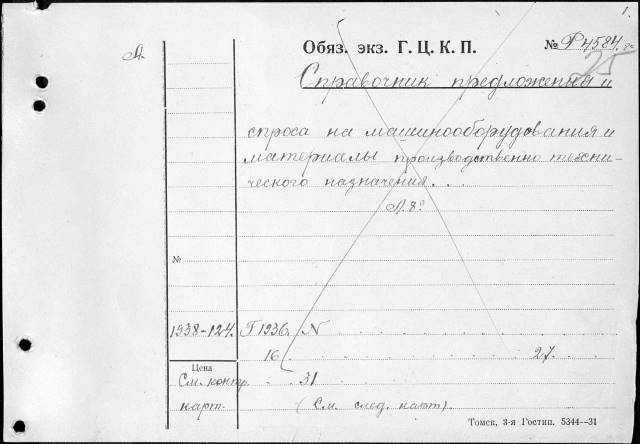 1.
Л. Обяз. экз. Г. Ц. К. П. № Р4584 8°
25
Справочник предложения и
спроса на машинооборудования и
материалы производственно технического назначения...
Л. 8°
№
1938-124. Г 1936. N
16 27.
Цена
См. контр. 31
карт. (См. след. карт).
Томск, 3-я Гостип. 5344—31